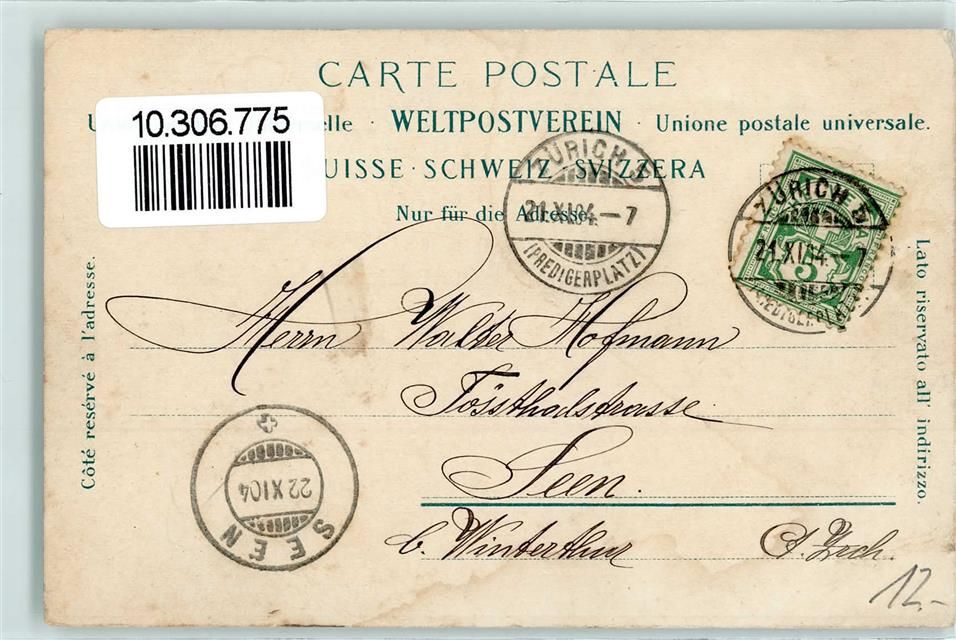 CARTE POSTALE
10.306.775
elle · WELTPOSTVEREIN · Unione postale universale.
UISSE · SCHWEIZ · SVIZZERA
Nur für die Adresse.
ZÜRICH
21.XI.04.–7
(PREDIGERPLATZ)
ZÜRICH
21.XI.04.–7
5
Côté resérvé à l'adresse.
Lato riservato all' indirizzo.
Herrn Walter Hofmann
Tössthalstrasse
Seen.
b. Winterthur Ct. Zrch.
22 XI 04
SEEN
12.-